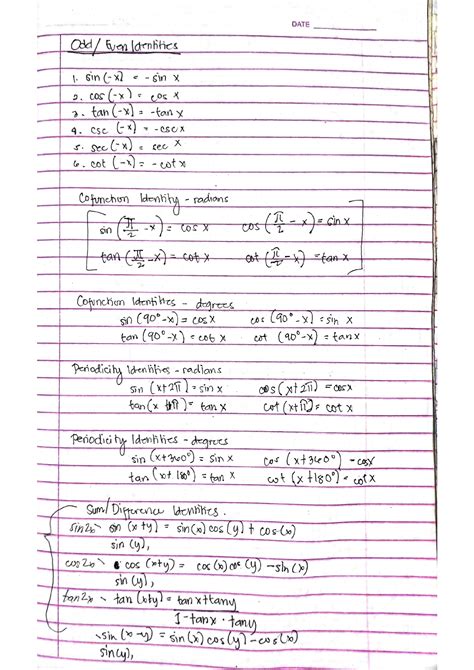 DATE
Odd/Even Identities
1. sin (-x) = -sin x
2. cos (-x) = cos x
3. tan (-x) = -tan x
4. csc (-x) = -csc x
5. sec (-x) = sec x
6. cot (-x) = -cot x
Cofunction Identity - radians
sin (π/2 - x) = cos x cos (π/2 - x) = sin x
tan (π/2 - x) = cot x cot (π/2 - x) = tan x
Cofunction Identities - degrees
sin (90° - x) = cos x cos (90° - x) = sin x
tan (90° - x) = cot x cot (90° - x) = tan x
Periodicity Identities - radians
sin (x+2π) = sin x cos (x+2π) = cos x
tan (x+π) = tan x cot (x+π) = cot x
Periodicity Identities - degrees
sin (x+360°) = sin x cos (x+360°) = cos x
tan (x+180°) = tan x cot (x+180°) = cot x
Sum/Difference Identities.
sin2x sin (x+y) = sin(x) cos(y) + cos(x)
sin (y),
cos2x cos (x+y) = cos(x) cos(y) - sin(x)
sin(y),
tan2x tan (x+y) = tan x + tan y
1 - tan x · tan y
sin (x-y) = sin(x) cos(y) - cos(x)
sin(y),